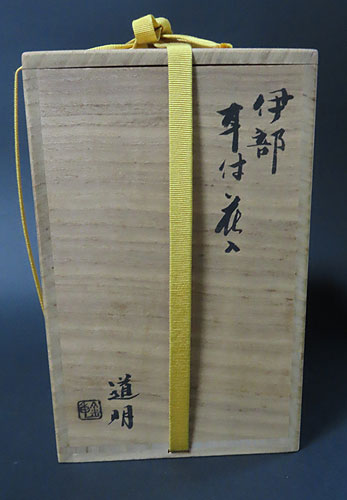 伊部
耳付花入
道明